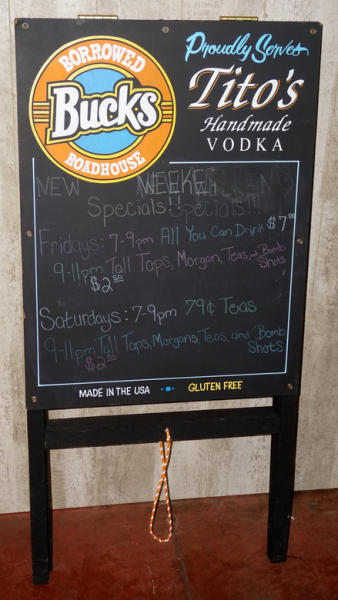 BORROWED
Bucks
ROADHOUSE
Proudly Serves
Tito's
Handmade
VODKA
NEW WEEKEND
Specials!! Specials!!!
Fridays: 7-9pm All You Can Drink $7.00
9-11pm Tall Taps, Morgan, Teas, and Bomb Shots
$2.50
Saturdays: 7-9pm 79¢ Teas
9-11pm Tall Taps, Morgans, Teas, and Bomb Shots
$2.50
MADE IN THE USA GLUTEN FREE